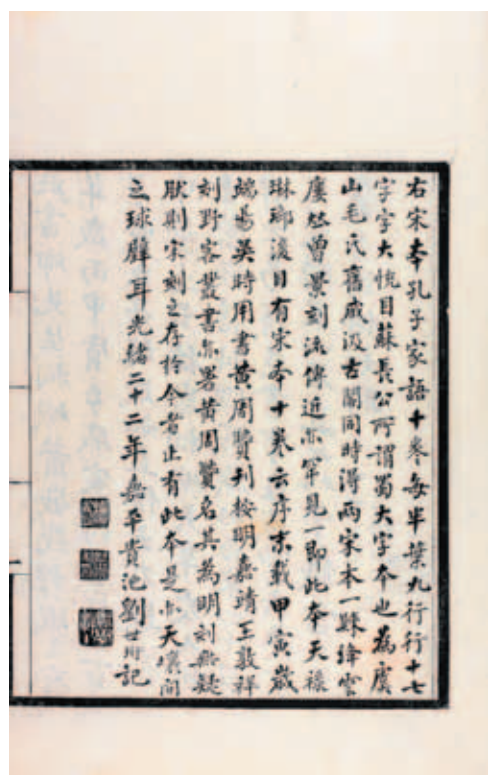 右宋本孔子家語十卷每半葉九行行十七
字字大悅目蘇長公所謂蜀大字本也為虞
山毛氏舊藏汲古閣同時得兩宋本一歸絳雲
廔燬曾景刻流傳近亦罕見一即此本天祿
琳瑯後目有宋本十卷云序末載甲寅歲
端昜吳時用書黃周賢刊按明嘉靖王敦祥
刻野客叢書亦署黃周賢名其為明刻無疑
肰則宋刻之存於今者止有此本是亦天壤間
之球璧耳光緒二十二年嘉平貴池劉世珩記